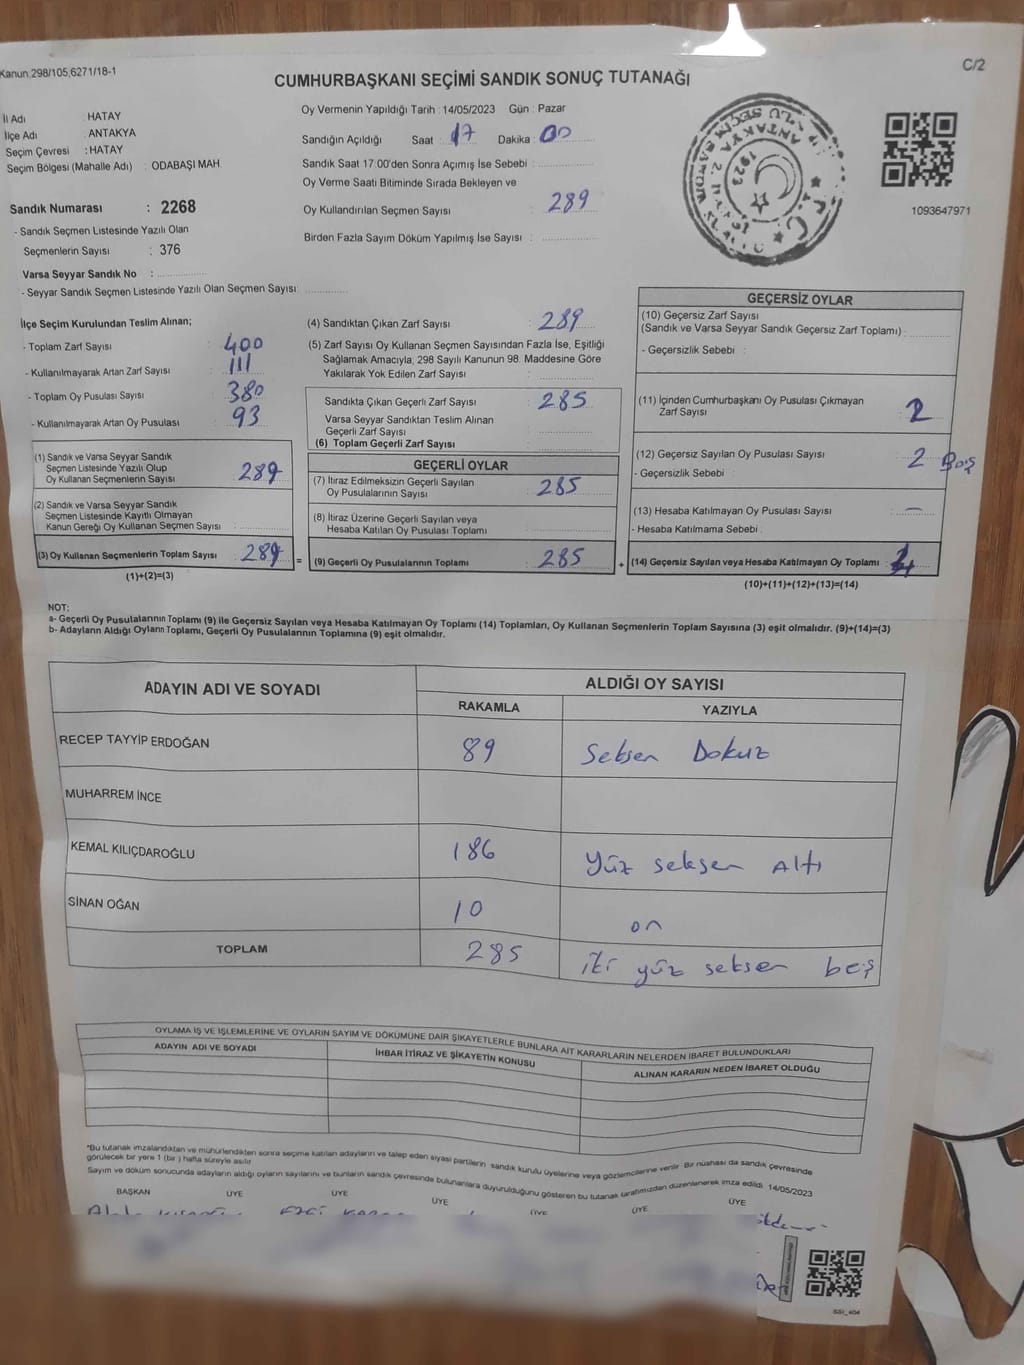 Kanun:298/105,6271/18-1
C/2
CUMHURBAŞKANI SEÇİMİ SANDIK SONUÇ TUTANAĞI
İl Adı : HATAY
İlçe Adı : ANTAKYA
Seçim Çevresi : HATAY
Seçim Bölgesi (Mahalle Adı) : ODABAŞI MAH.
Sandık Numarası : 2268
- Sandık Seçmen Listesinde Yazılı Olan
Seçmenlerin Sayısı : 376
Varsa Seyyar Sandık No :
- Seyyar Sandık Seçmen Listesinde Yazılı Olan Seçmen Sayısı:
Oy Vermenin Yapıldığı Tarih : 14/05/2023 Gün : Pazar
Sandığın Açıldığı Saat : 17 Dakika : 00
Sandık Saat 17:00'den Sonra Açımış İse Sebebi :
Oy Verme Saati Bitiminde Sırada Bekleyen ve
Oy Kullandırılan Seçmen Sayısı : 289
Birden Fazla Sayım Döküm Yapılmış İse Sayısı :
T.C.
ANTAKYA 2.
1923
1093647971
İlçe Seçim Kurulundan Teslim Alınan;
- Toplam Zarf Sayısı : 400
- Kullanılmayarak Artan Zarf Sayısı : 111
- Toplam Oy Pusulası Sayısı : 380
- Kullanılmayarak Artan Oy Pusulası : 93
(1) Sandık ve Varsa Seyyar Sandık
Seçmen Listesinde Yazılı Olup
Oy Kullanan Seçmenlerin Sayısı : 289
(2) Sandık ve Varsa Seyyar Sandık
Seçmen Listesinde Kayıtlı Olmayan
Kanun Gereği Oy Kullanan Seçmen Sayısı :
(3) Oy Kullanan Seçmenlerin Toplam Sayısı : 289
(1)+(2)=(3)
(4) Sandıktan Çıkan Zarf Sayısı : 289
(5) Zarf Sayısı Oy Kullanan Seçmen Sayısından Fazla İse, Eşitliği
Sağlamak Amacıyla, 298 Sayılı Kanunun 98. Maddesine Göre
Yakılarak Yok Edilen Zarf Sayısı :
Sandıkta Çıkan Geçerli Zarf Sayısı : 285
Varsa Seyyar Sandıktan Teslim Alınan
Geçerli Zarf Sayısı :
(6) Toplam Geçerli Zarf Sayısı :
GEÇERLİ OYLAR
(7) İtiraz Edilmeksizin Geçerli Sayılan
Oy Pusulalarının Sayısı : 285
(8) İtiraz Üzerine Geçerli Sayılan veya
Hesaba Katılan Oy Pusulası Toplamı :
= (9) Geçerli Oy Pusulalarının Toplamı : 285
GEÇERSİZ OYLAR
(10) Geçersiz Zarf Sayısı
(Sandık ve Varsa Seyyar Sandık Geçersiz Zarf Toplamı) :
- Geçersizlik Sebebi :
(11) İçinden Cumhurbaşkanı Oy Pusulası Çıkmayan
Zarf Sayısı : 2
(12) Geçersiz Sayılan Oy Pusulası Sayısı : 2 Boş
- Geçersizlik Sebebi :
(13) Hesaba Katılmayan Oy Pusulası Sayısı : —
- Hesaba Katılmama Sebebi :
+ (14) Geçersiz Sayılan veya Hesaba Katılmayan Oy Toplamı : 4
(10)+(11)+(12)+(13)=(14)
NOT:
a- Geçerli Oy Pusulalarının Toplamı (9) ile Geçersiz Sayılan veya Hesaba Katılmayan Oy Toplamı (14) Toplamları, Oy Kullanan Seçmenlerin Toplam Sayısına (3) eşit olmalıdır. (9)+(14)=(3)
b- Adayların Aldığı Oyların Toplamı, Geçerli Oy Pusulalarının Toplamına (9) eşit olmalıdır.
ADAYIN ADI VE SOYADI
ALDIĞI OY SAYISI
RAKAMLA YAZIYLA
RECEP TAYYİP ERDOĞAN 89 Seksen Dokuz
MUHARREM İNCE
KEMAL KILIÇDAROĞLU 186 Yüz seksen Altı
SİNAN OĞAN 10 on
TOPLAM 285 iki yüz seksen beş
OYLAMA İŞ VE İŞLEMLERİNE VE OYLARIN SAYIM VE DÖKÜMÜNE DAİR ŞİKAYETLERLE BUNLARA AİT KARARLARIN NELERDEN İBARET BULUNDUKLARI
ADAYIN ADI VE SOYADI İHBAR İTİRAZ VE ŞİKAYETİN KONUSU ALINAN KARARIN NEDEN İBARET OLDUĞU
*Bu tutanak imzalandıktan ve mühürlendikten sonra seçime katılan adayların ve talep eden siyasi partilerin sandık kurulu üyelerine veya gözlemcilerine verilir. Bir nüshası da sandık çevresinde
görülecek bir yere 1 (bir) hafta süreyle asılır.
Sayım ve döküm sonucunda adayların aldığı oyların sayılarını ve bunların sandık çevresinde bulunanlara duyurulduğunu gösteren bu tutanak tarafımızdan düzenlenerek imza edildi. 14/05/2023
BAŞKAN ÜYE ÜYE ÜYE ÜYE ÜYE ÜYE